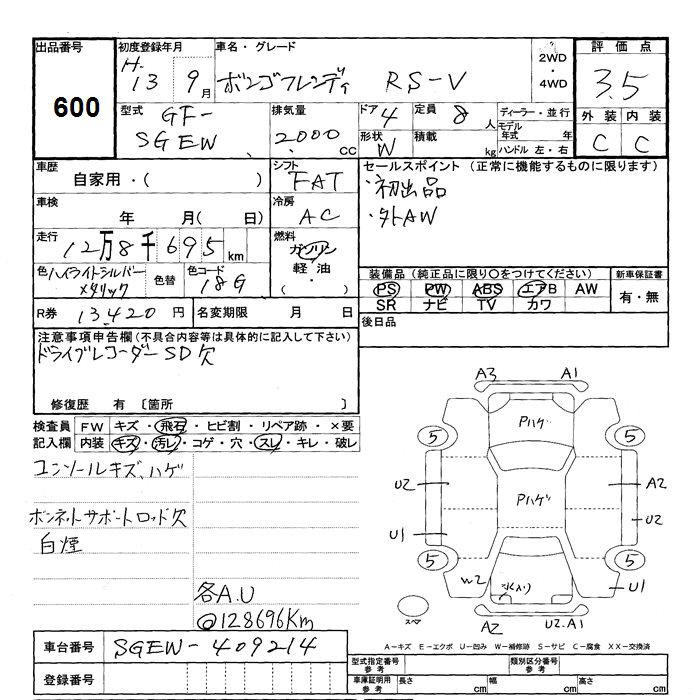 出品番号 初度登録年月 車名・グレード 2WD ・ 4WD 評価点
600 H. 13 9月 ボンゴフレンディ RS-V 3.5
型式 GF-SGEW 排気量 2000cc ドア 4 定員 8人 ディーラー・並行 外装 内装
形状 W 積載 kg モデル年式 年 ハンドル 左・右 C C
車歴 自家用・( ) シフト FAT セールスポイント (正常に機能するものに限ります)
・初出品
車検 年 月( 日) 冷房 AC ・外AW
走行 12万8千695km 燃料 ガソリン 軽油 ・ ( )
色 ハイライトシルバーメタリック 色替 色コード 18G 装備品 (純正品に限り○をつけてください) 新車保証書
PS PW ABS エアB AW 有・無
SR ナビ TV カワ
R券 13420円 名変期限 月 日 後日品
注意事項申告欄 (不具合内容等は具体的に記入して下さい)
ドライブレコーダーSD欠
修復歴 有 [箇所 ]
検査員記入欄 FW キズ・飛石・ヒビ割・リペア跡・×要
内装 キズ・汚レ・コゲ・穴・スレ・キレ・破レ
コンソールキズ、ハゲ
ボンネットサポートロッド欠
白煙
各A.U
@128696Km
A3 A1
Pハゲ
5 5
U2 Pハゲ A2
U2
U1
5 5
W2 U1
スペア A2 U2.A1
A-キズ E-エクボ U-凹み W-補修跡 S-サビ C-腐食 XX-交換済
車台番号 SGEW-409214
登録番号
型式指定番号 参考 類別区分番号 参考
車庫証明用 参考 長さ cm 幅 cm 高さ cm